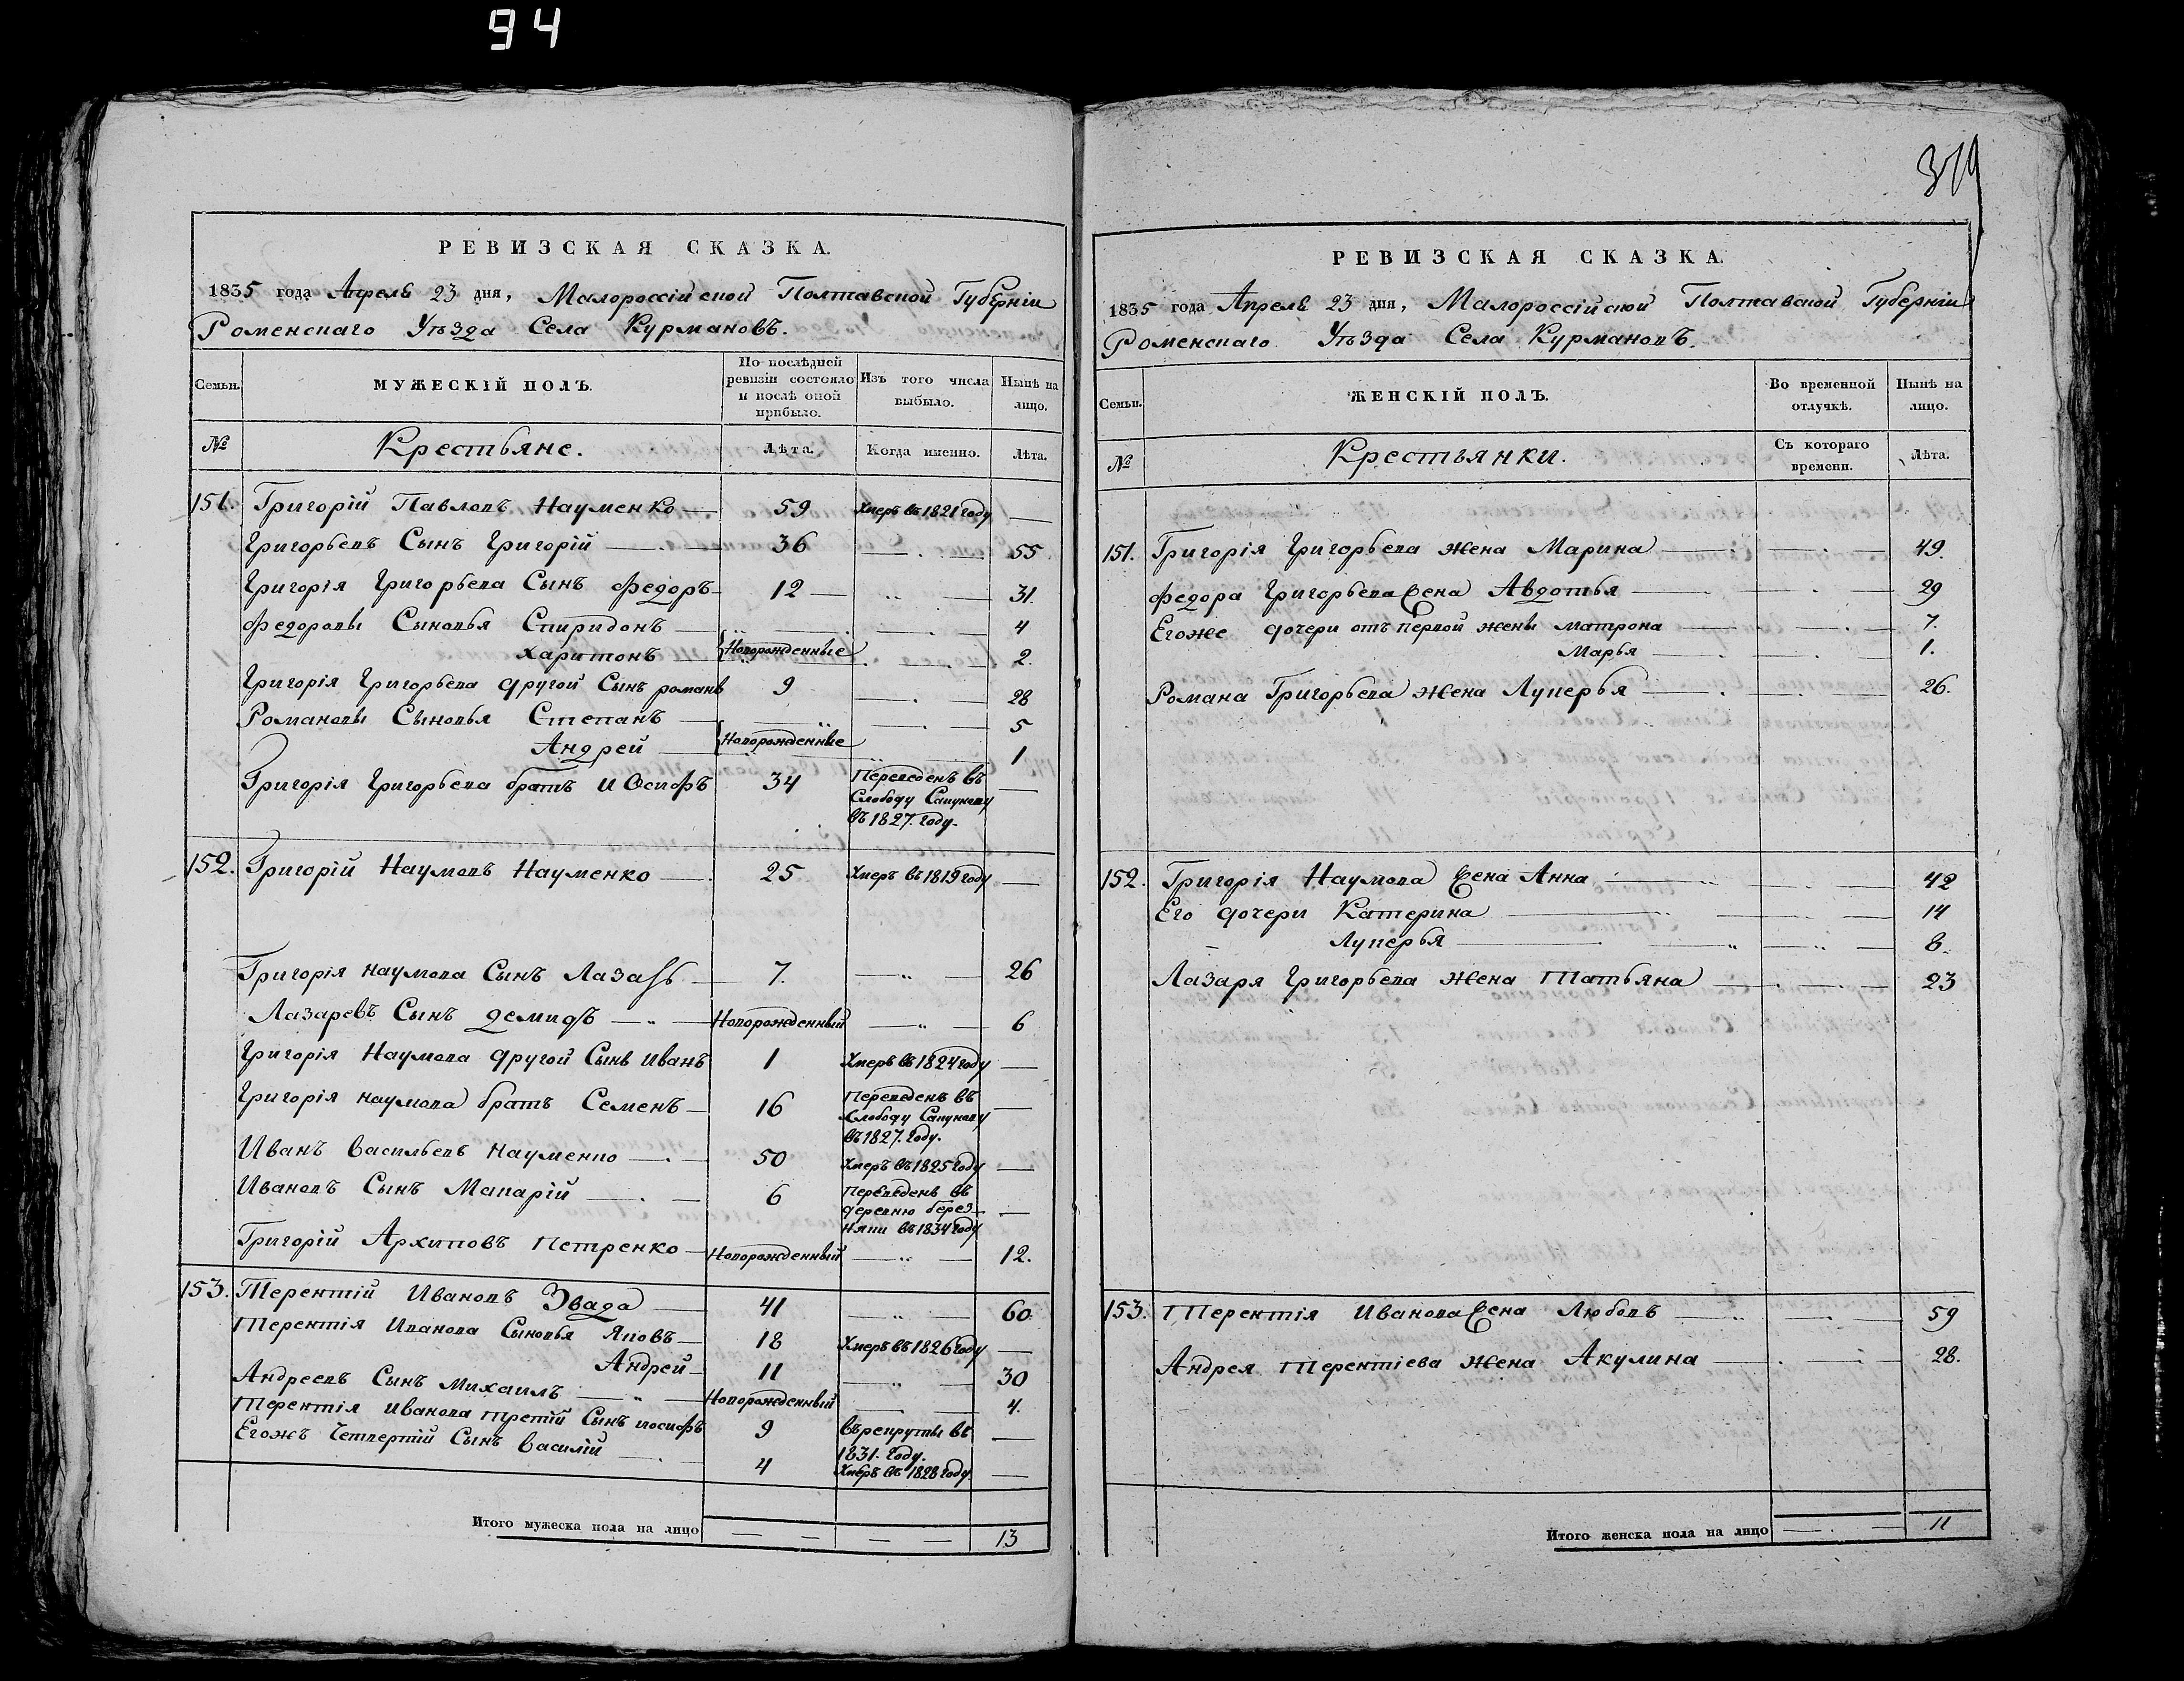 94
РЕВИЗСКАЯ СКАЗКА.
1835 года Апреля 23 дня, Малороссійской Полтавской Губерніи
Роменскаго Уѣзда Села Курмановъ.
Семьи.
МУЖЕСКІЙ ПОЛЪ.
По послѣдней ревизіи состояло и послѣ оной прибыло.
Изъ того числа выбыло.
Нынѣ на лицо.
№ Крестьяне. Лѣта. Когда именно. Лѣта.
151. Григорій Павловъ Науменко — 59 Умеръ въ 1821 году —
Григорьевъ Сынъ Григорій — 36 — 55
Григорія Григорьева Сынъ Федоръ — 12 — 31.
Федоровы Сыновья Спиридонъ — 4
Харитонъ — Новорожденные — 2.
Григорія Григорьева другой Сынъ романъ 9 — 28
Романовы Сыновья Степанъ — 5
Андрей — Новорожденные — 1
Григорія Григорьева братъ Иосифъ 34 Переведенъ въ —
Слободу Сакунову
въ 1827. году.
152. Григорій Наумовъ Науменко — 25 Умеръ въ 1819 году —
Григорія наумова Сынъ Лазарь — 7. — 26
Лазаревъ Сынъ демидъ — Новорожденный — 6
Григорія Наумова другой Сынъ иванъ 1 Умеръ въ 1824 году —
Григорія наумова братъ Семенъ — 16 Переведенъ въ —
Слободу Сакунову
въ 1827. году.
Иванъ васильевъ науменко — 50 Умеръ въ 1825 году —
Ивановъ Сынъ Макарій — 6 Переведенъ въ —
деревню берез-
няки въ 1834 году
Григорій Архиповъ Петренко — Новорожденный — 12.
153. Терентій Ивановъ Звада — 41 — 60
Терентія Иванова Сыновья Яковъ — 18 Умеръ въ 1826 году —
Андрей — 11 — 30
Андреевъ Сынъ михаилъ — Новорожденный — 4.
Терентія иванова третій Сынъ иосифъ 9 въ рекруты въ —
1831. году.
Егожъ Четвертій Сынъ василій — 4 Умеръ въ 1828 году —
Итого мужеска пола на лицо — — 13
РЕВИЗСКАЯ СКАЗКА.
1835 года Апреля 23 дня, Малороссійской Полтавской Губерніи
Роменскаго Уѣзда Села Курмановъ.
Семьи.
ЖЕНСКІЙ ПОЛЪ.
Во временной отлучкѣ.
Нынѣ на лицо.
№ Крестьянки. Съ котораго времени. Лѣта.
151. Григорія Григорьева жена Марина — — 49.
Федора Григорьева жена Авдотья — — 29
Егоже дочери отъ первой жены матрона — — 7.
Марья — — 1.
Романа Григорьева жена Лукерья — — 26.
152. Григорія Наумова жена Анна — — 42
Его дочери Катерина — — 14
Лукерья — — 8.
Лазаря Григорьева жена Татьяна — — 23
153. Терентія Иванова жена Любовъ — — 59
Андрея Терентіева жена Акулина — — 28.
Итого женска пола на лицо — 11